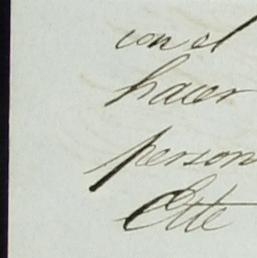 con el
hacer
person
Otte